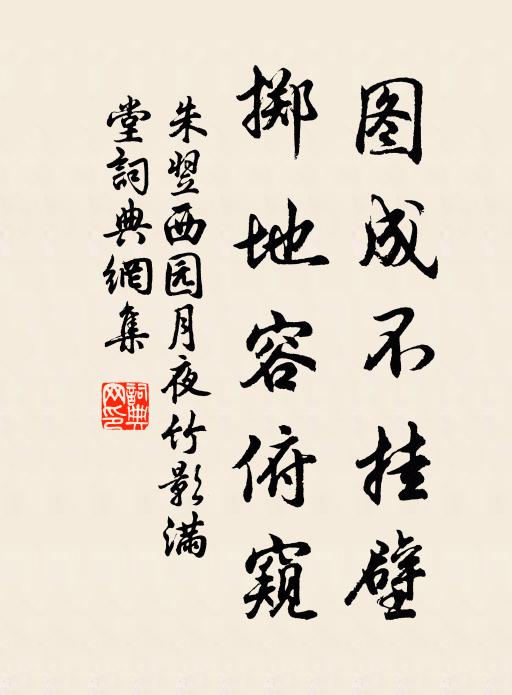 图成不挂壁
掷地容俯窥
朱翌西园月夜竹影满
堂詞典網集
詞典
网印